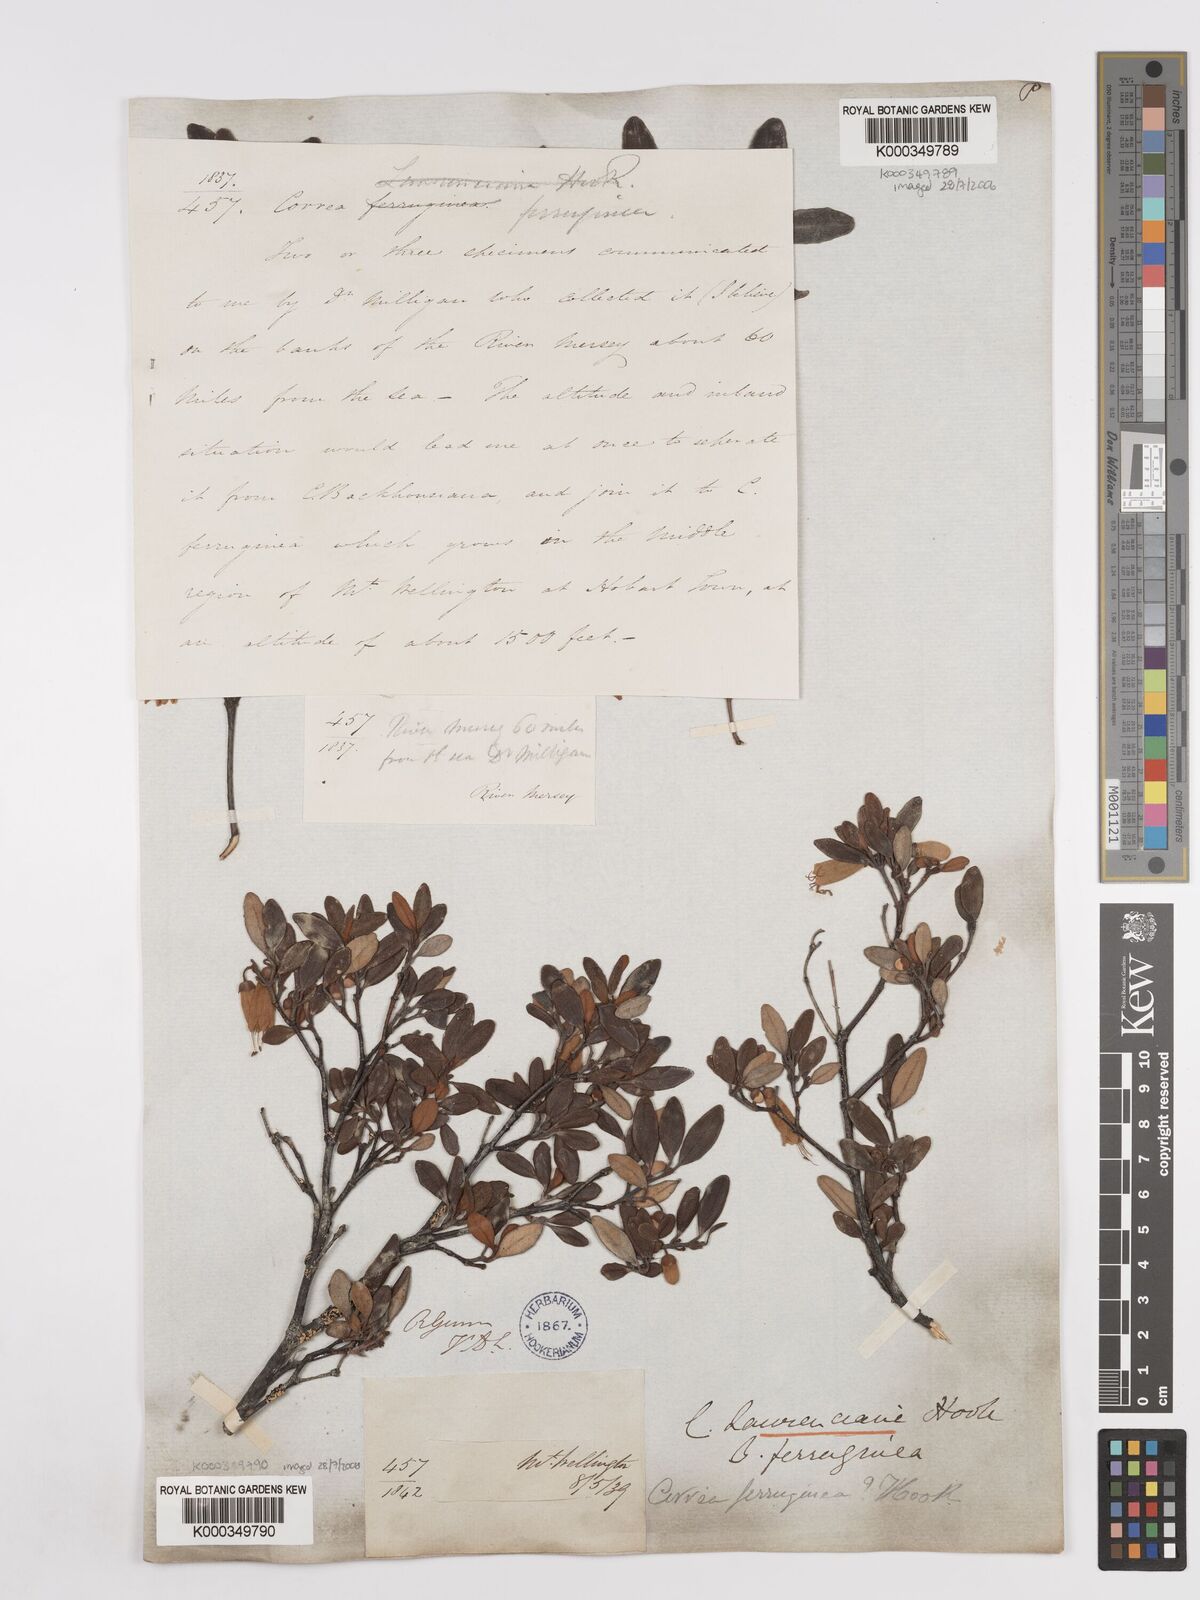 ROYAL BOTANIC GARDENS KEW
K000349789
K000349789
imaged 28/7/2006
1837. Lawrenciana Hook.
457. Correa ferruginea. ferruginea.
Two or three specimens communicated
to me by Dr Milligan who collected it (I believe)
on the banks of the River Mersey about 60
miles from the sea – The altitude and inland
situation would lead me at once to separate
it from C Backhousiana, and join it to C.
ferruginea which grows in the middle
region of Mt. Wellington at Hobart Town, at
an altitude of about 1500 feet. –
457 River Mersey 60 miles
1837. from the sea Dr Milligan
River Mersey
R Gunn
V.D.L.
HERBARIUM
1867.
HOOKERIANUM
457 Mt. Wellington
1842 8/5/39
C. Lawrenciana Hook
B. ferruginea
Correa ferruginea? Hook.
K000349790 imaged 28/7/2006
ROYAL BOTANIC GARDENS KEW
K000349790
inches
D50 Illuminant, 2 degree observer
Density
Don Williams
M001121
Royal Botanic Gardens
Kew
0 1 2 3 4 5 6 7 8 9 10
cm
copyright reserved